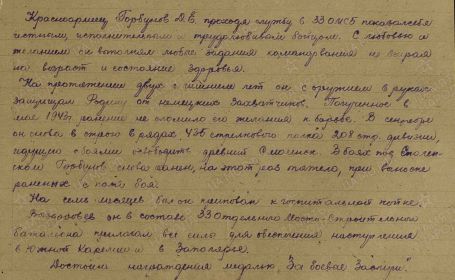 Красноармеец Горбунов Д.Е. проходя службу в 33 ОМСБ показал себя
честным, исполнительным и трудолюбивым бойцом. С любовью и
желанием он выполнял любые задания командования не взирая
на возраст и состояние здоровья.
На протяжении двух с лишним лет он с оружием в руках
защищал Родину от немецких захватчиков. Полученное в
мае 1942г ранение не сломило его желания к борьбе. В сентябре
он снова в строю в рядах 435 стрелкового полка 208 стр. дивизии,
идущую с боями освободить древний Смоленск. В боях под Смолен-
ском Горбунов снова ранен, на этот раз тяжело, при выносе
раненых с поля боя.
На семь месяцев был он прикован к госпитальной койке.
Выздоровев он в составе 33 Отдельного Мосто-Строительного
батальона прилагал все силы для обеспечения наступления
в Южной Карелии и в Заполярье.
Достоин награждения медалью "За боевые Заслуги".